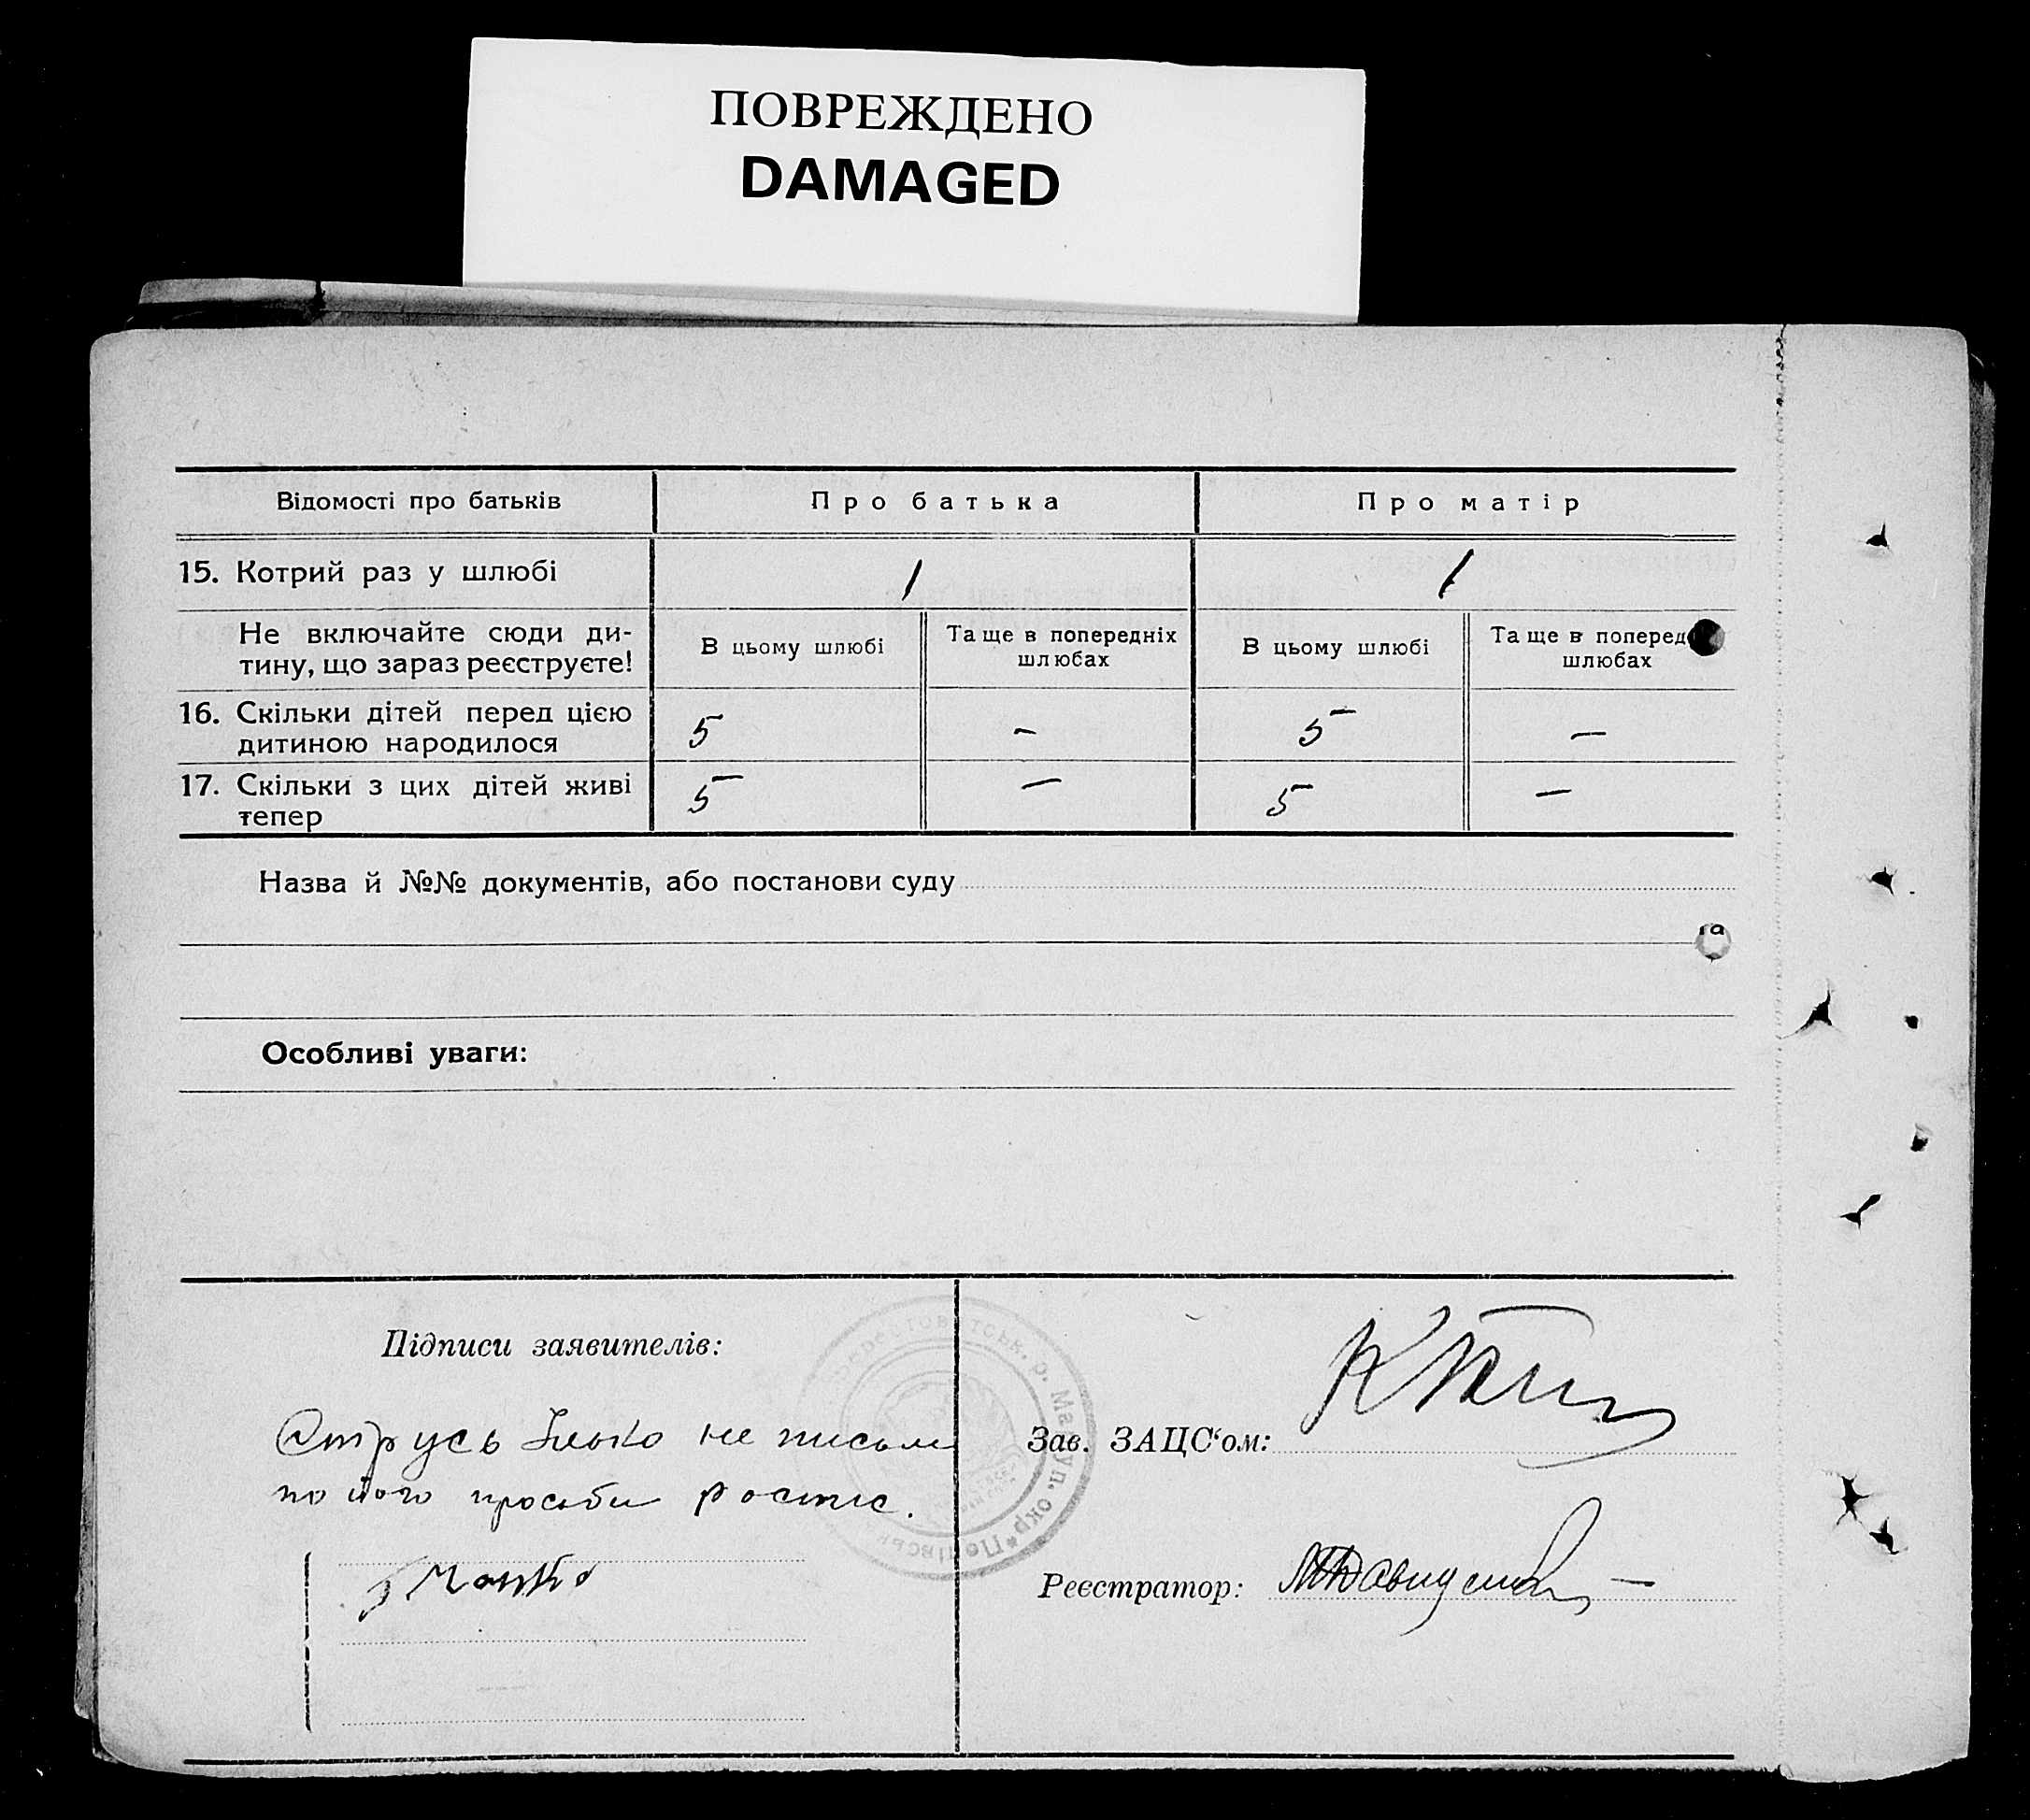 ПОВРЕЖДЕНО
DAMAGED
Відомості про батьків
Про батька
Про матір
15. Котрий раз у шлюбі
1
1
Не включайте сюди ди-
тину, що зараз реєструєте!
В цьому шлюбі
Та ще в попередніх
шлюбах
В цьому шлюбі
Та ще в поперед
шлюбах
16. Скільки дітей перед цією
дитиною народилося
5
–
5
–
17. Скільки з цих дітей живі
тепер
5
–
5
–
Назва й №№ документів, або постанови суду
Особливі уваги:
Підписи заявителів:
Струсь Ілько не письм
по його просьби роспис.
Зав. ЗАЦС‘ом:
Реєстратор:
р. Маріюп. окр.